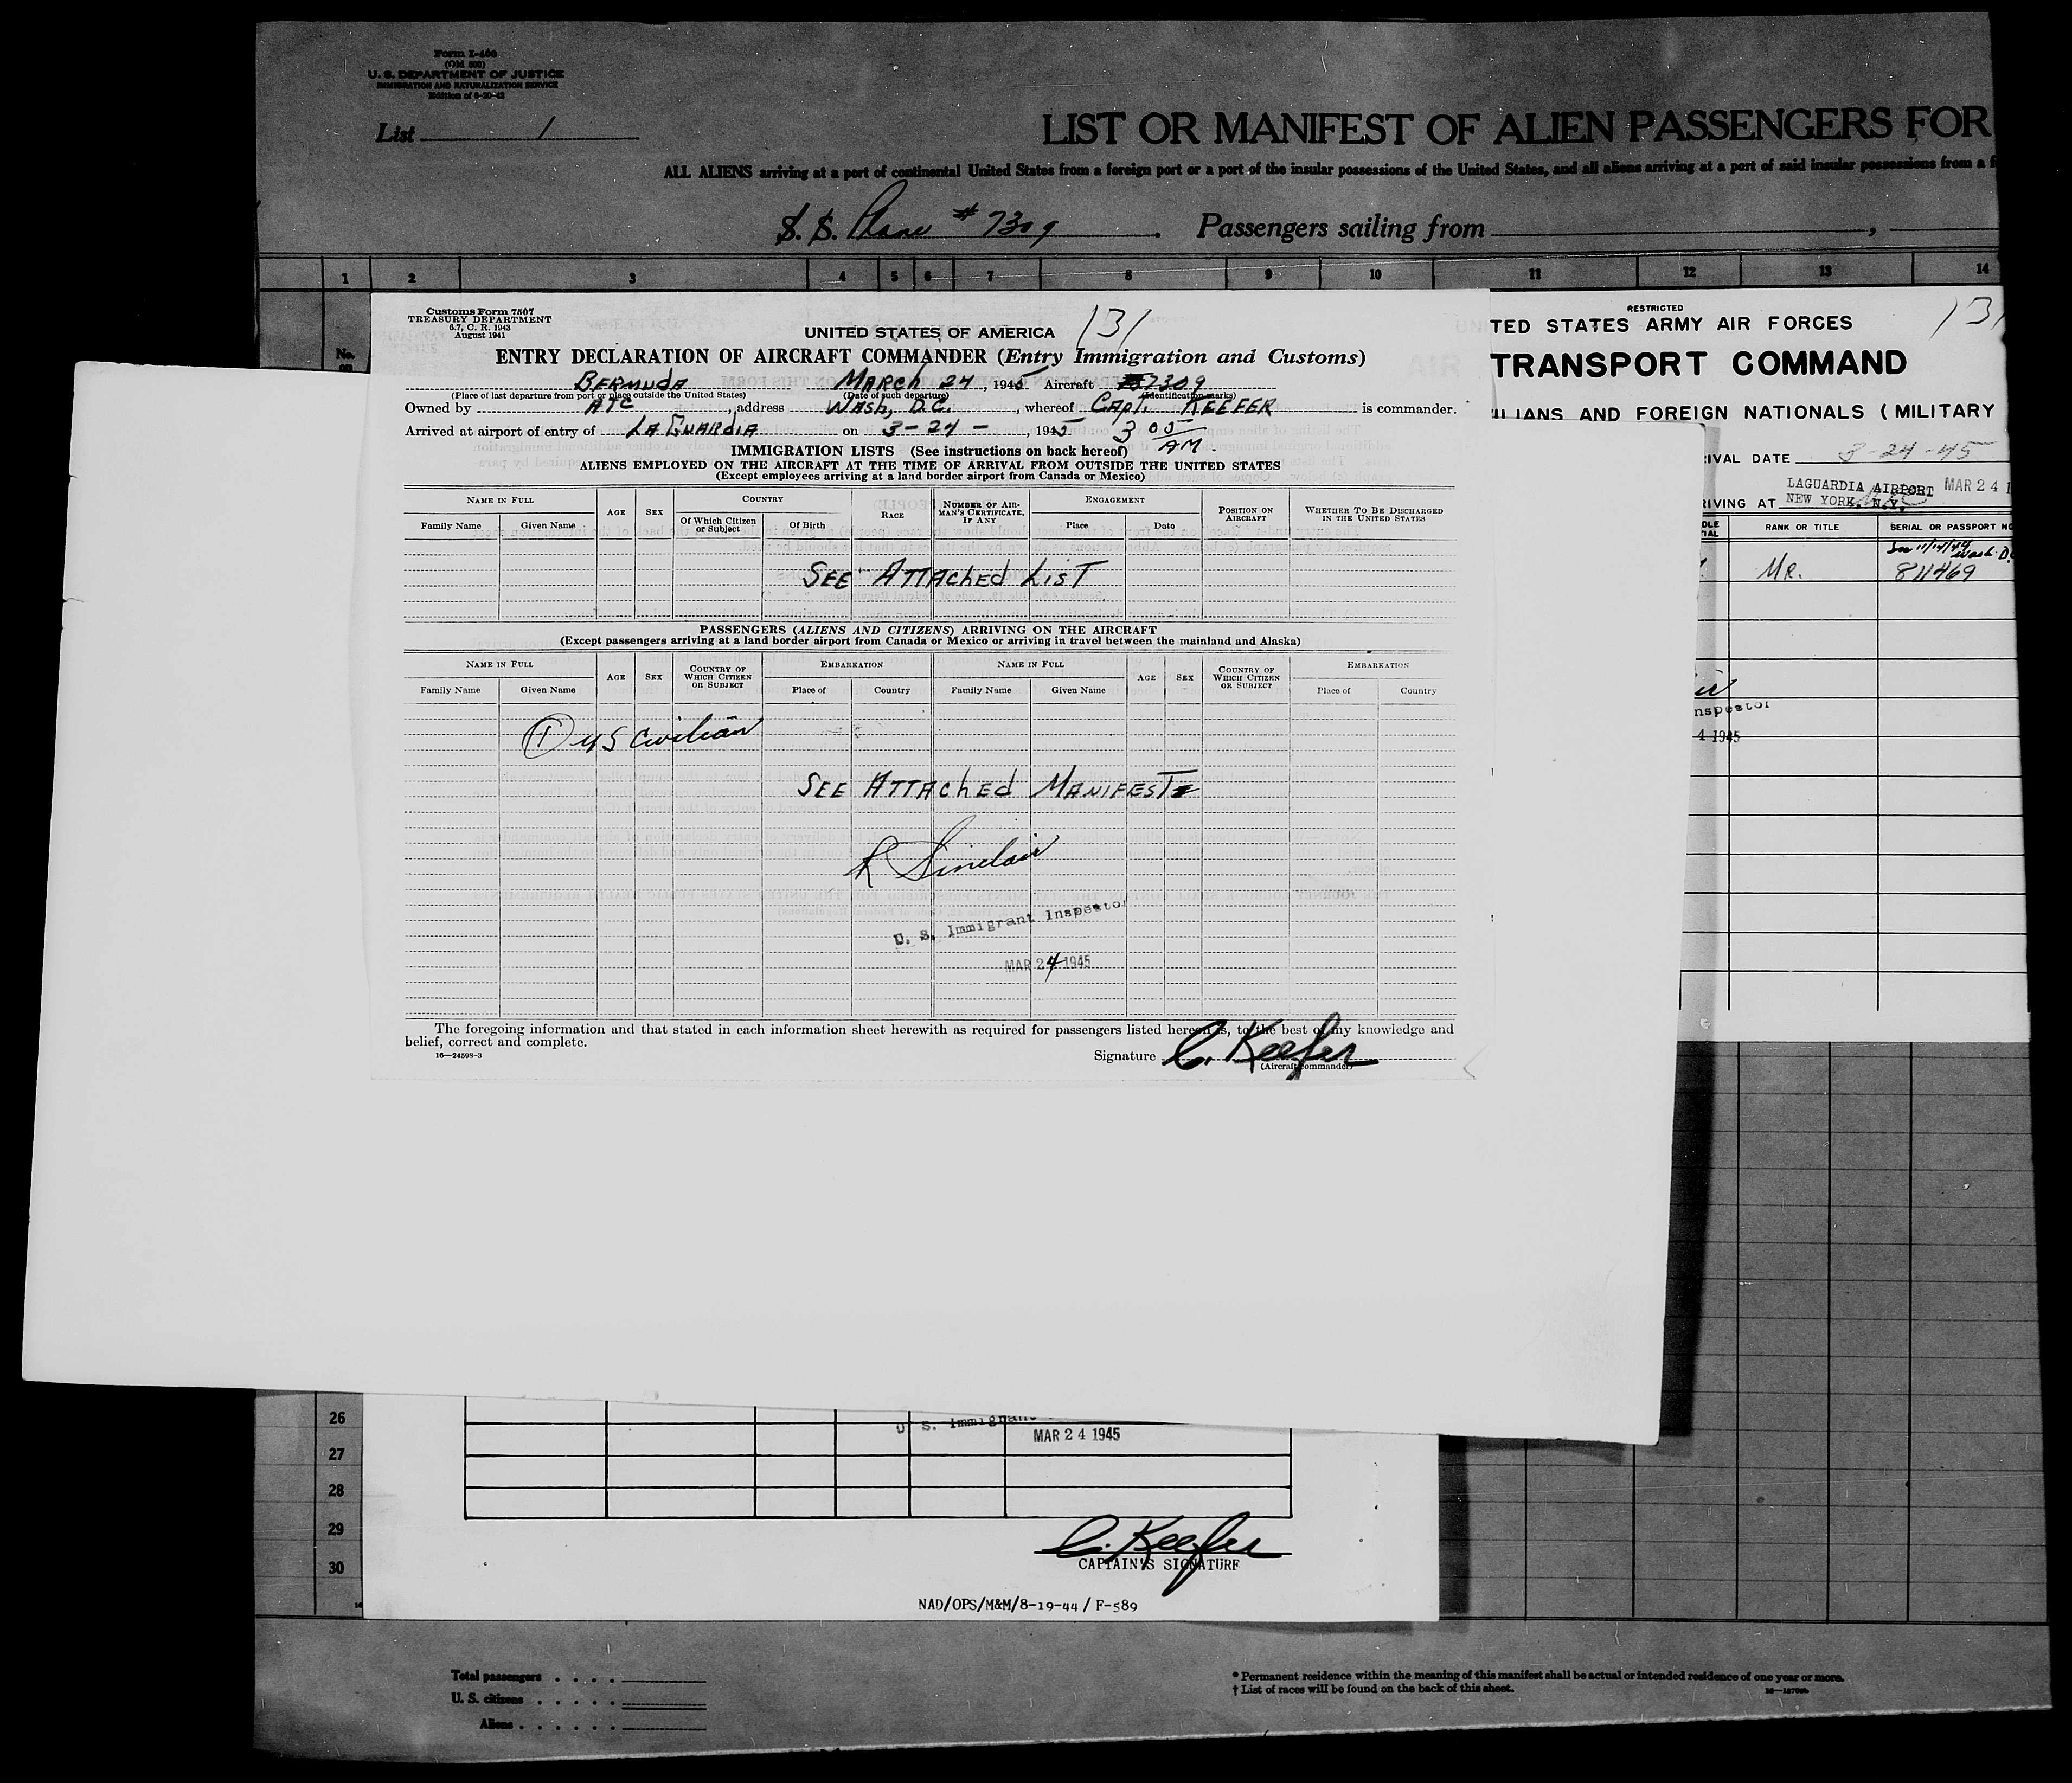 Form I-466
(Old 500)
U. S. DEPARTMENT OF JUSTICE
IMMIGRATION AND NATURALIZATION SERVICE
List 1
LIST OR MANIFEST OF ALIEN PASSENGERS FOR
ALL ALIENS arriving at a port of continental United States from a foreign port or a port of the insular possessions of the United States, and all aliens arriving at a port of said insular possessions from a f
S. S. Plane # 7309. Passengers sailing from ,
1 2 3 4 5 6 7 8 9 10 11 12 13 14
No.
Customs Form 7507
TREASURY DEPARTMENT
6.7, C. R. 1943
August 1941
131
UNITED STATES OF AMERICA
ENTRY DECLARATION OF AIRCRAFT COMMANDER (Entry Immigration and Customs)
BERMUDA MARCH 24, 1945 Aircraft 7309
(Place of last departure from port or place outside the United States) (Date of such departure) (Identification marks)
Owned by ATC, address WASH, D.C., whereof CAPT. KEEFER is commander.
Arrived at airport of entry of LA GUARDIA on 3-24-, 1945 3 05 AM.
IMMIGRATION LISTS (See instructions on back hereof)
ALIENS EMPLOYED ON THE AIRCRAFT AT THE TIME OF ARRIVAL FROM OUTSIDE THE UNITED STATES
(Except employees arriving at a land border airport from Canada or Mexico)
NAME IN FULL AGE SEX COUNTRY RACE NUMBER OF AIRMAN'S CERTIFICATE, IF ANY ENGAGEMENT POSITION ON AIRCRAFT WHETHER TO BE DISCHARGED IN THE UNITED STATES
Family Name Given Name Of Which Citizen or Subject Of Birth Place Date
SEE ATTACHED LIST
PASSENGERS (ALIENS AND CITIZENS) ARRIVING ON THE AIRCRAFT
(Except passengers arriving at a land border airport from Canada or Mexico or arriving in travel between the mainland and Alaska)
NAME IN FULL AGE SEX COUNTRY OF WHICH CITIZEN OR SUBJECT EMBARKATION NAME IN FULL AGE SEX COUNTRY OF WHICH CITIZEN OR SUBJECT EMBARKATION
Family Name Given Name Place of Country Family Name Given Name Place of Country
1 US Civilian
SEE ATTACHED MANIFEST
R Sinclair
U. S. Immigrant Inspector
MAR 24 1945
The foregoing information and that stated in each information sheet herewith as required for passengers listed hereon is, to the best of my knowledge and
belief, correct and complete.
16—24598-3
Signature C. Keefer
(Aircraft commander)
RESTRICTED
TED STATES ARMY AIR FORCES
131
TRANSPORT COMMAND
LIANS AND FOREIGN NATIONALS (MILITARY
IVAL DATE 3-24-45
RIVING AT LAGUARDIA AIRPORT NEW YORK, N.Y. MAR 24 1
DLE TIAL RANK OR TITLE SERIAL OR PASSPORT NO
11/14/44 Wash. D.
MR. 811469
nspector
4 1945
26
27
28
29
30
U. S. Immigrant
MAR 24 1945
C. Keefer
CAPTAIN'S SIGNATURE
NAD/OPS/M&M/8-19-44 / F-589
Total passengers
U. S. citizens
Aliens
* Permanent residence within the meaning of this manifest shall be actual or intended residence of one year or more.
† List of races will be found on the back of this sheet.